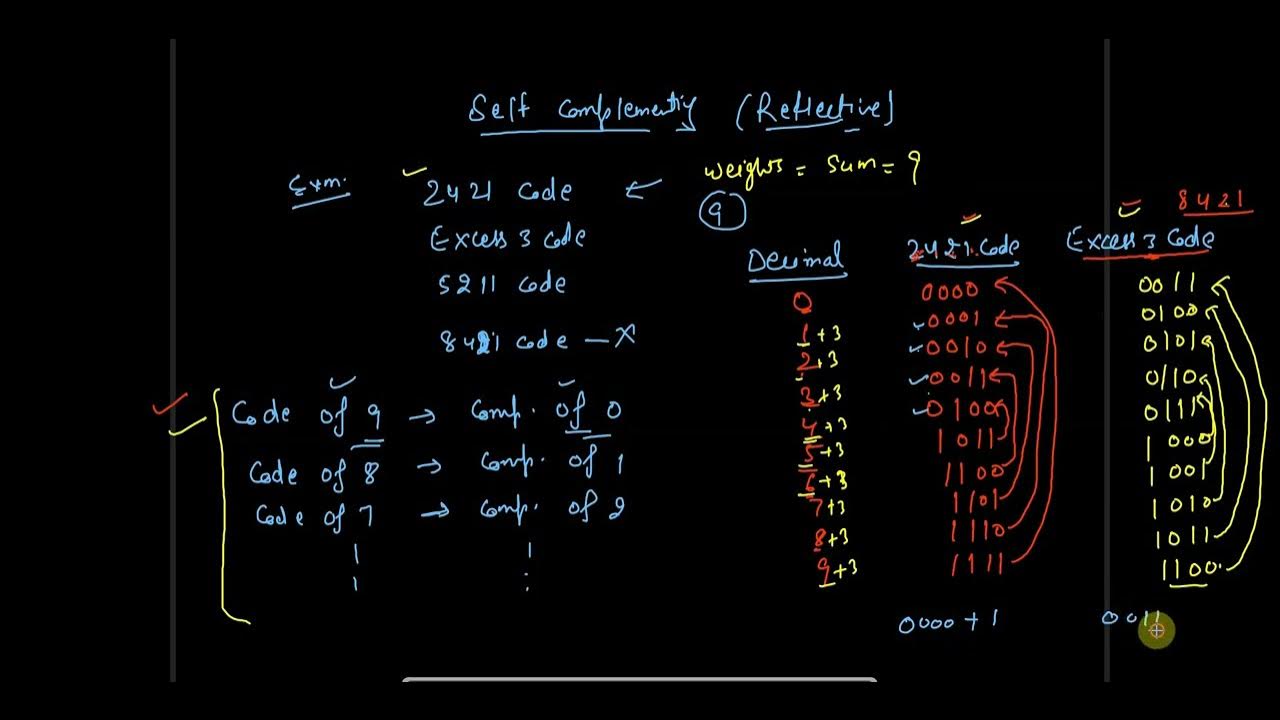 Self Complementiy (Reflective)
Exm.
2421 Code
Excess 3 Code
5211 Code
8421 Code - X
weights = sum = 9
9
Code of 9 → Comp. of 0
Code of 8 → Comp. of 1
Code of 7 → Comp. of 2
8421
Decimal 2421 Code Excess 3 Code
0 0000 0011
1+3 0001 0100
2+3 0010 0101
3+3 0011 0110
4+3 0100 0111
5+3 1011 1000
6+3 1100 1001
7+3 1101 1010
8+3 1110 1011
9+3 1111 1100
0000 + 1 0011